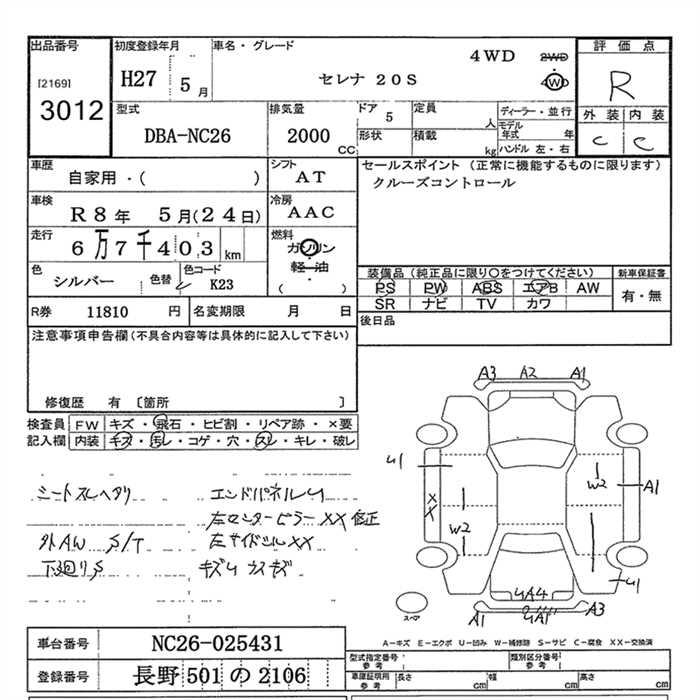 出品番号 初度登録年月 車名・グレード 評価点
[2169] 3012 H27 5月 セレナ 20S 4WD 2WD 4WD R
型式 排気量 ドア 5 定員 人 ディーラー・並行 外装 内装
DBA-NC26 2000 CC 形状 積載 kg モデル年式 年 ハンドル 左・右 C C
車歴 シフト セールスポイント (正常に機能するものに限ります)
自家用・( ) AT クルーズコントロール
車検 冷房
R8年 5月(24日) AAC
走行 燃料
6万7千403 km ガソリン
軽・油
色 シルバー 色替 色コード K23 ( )
装備品 (純正品に限り○をつけてください) 新車保証書
PS PW ABS エアB AW 有・無
SR ナビ TV カワ
R券 11810 円 名変期限 月 日 後日品
注意事項申告欄(不具合内容等は具体的に記入して下さい)
修復歴 有 [箇所 ]
検査員 FW キズ・飛石・ヒビ割・リペア跡・×要
記入欄 内装 キズ・汚レ・コゲ・穴・スレ・キレ・破レ
シートスレヘタリ エンドパネルU
左センターピラーXX修正
外AW S/T 左サイドシルXX
下廻りS キズU カスキズ
A3 A2 A1
U1
W2 A1
XX
W2
U1
UA4
A1 UA1 A3
スペア
A-キズ E-エクボ U-凹み W-補修跡 S-サビ C-腐食 XX-交換済
車台番号 NC26-025431 型式指定番号 参考 類別区分番号 参考
登録番号 長野 501 の 2106 車庫証明用 参考 長さ cm 幅 cm 高さ cm